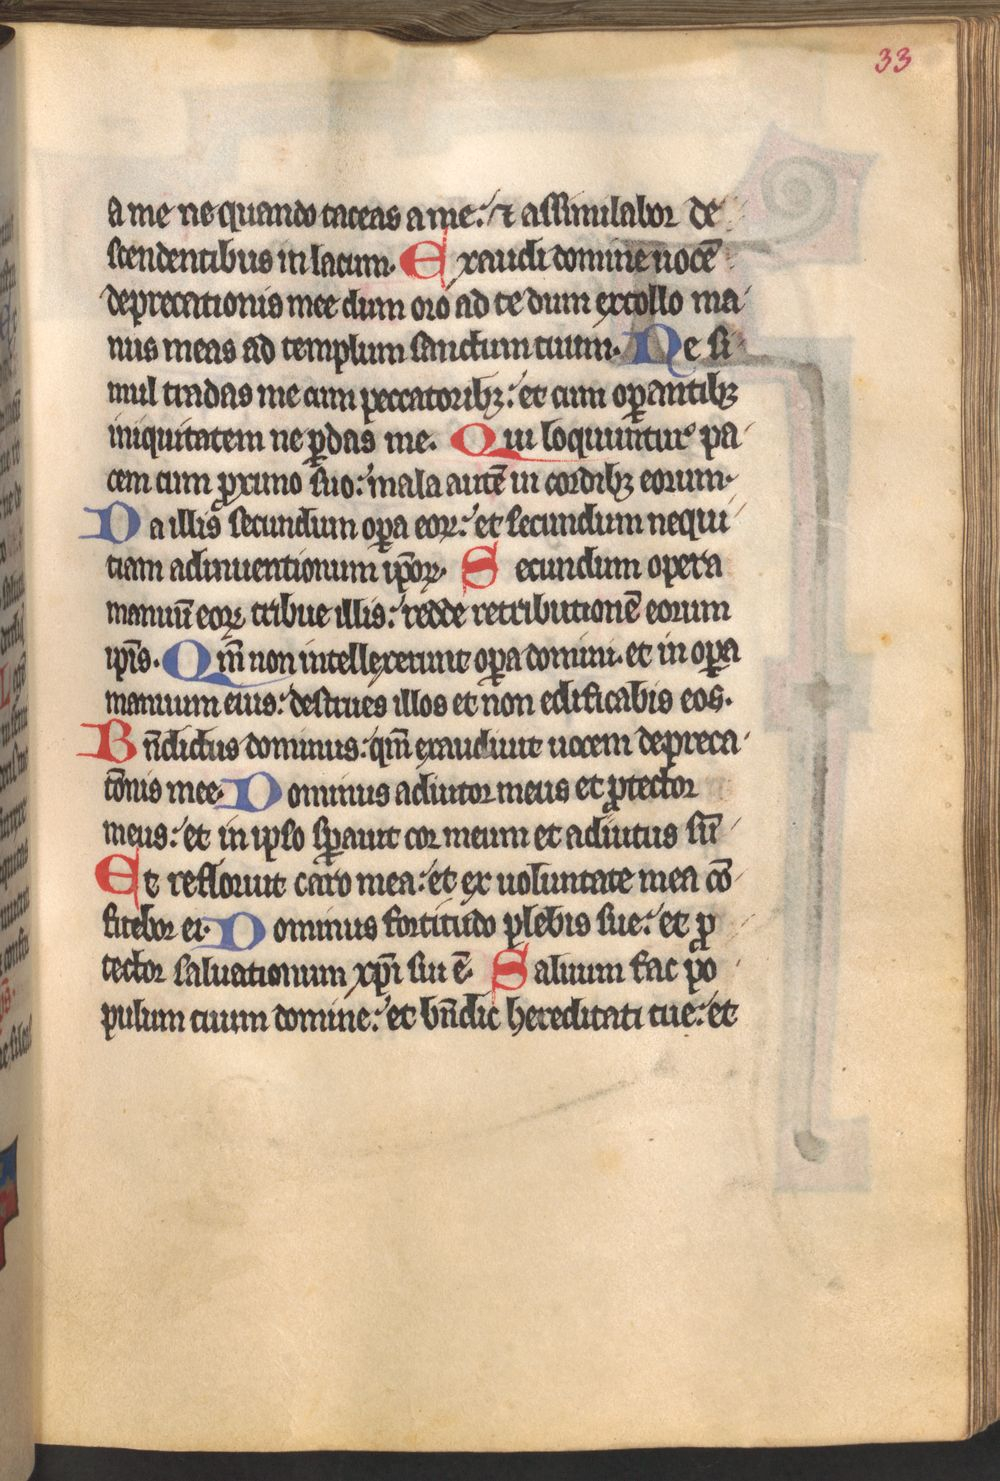 33
a me ne quando taceas a me: ⁊ assimilabor de
scendentibus in lacum. Exaudi domine uocē
deprecationis mee dum oro ad te dum extollo ma
nus meas ad templum sanctum tuum. Ne si
mul tradas me cum peccatoribꝫ: et cum oꝑantibꝫ
iniquitatem ne ꝑdas me. Qui loquuntur pa
cem cum ꝓximo suo: mala autē in cordibꝫ eorum.
Da illis secundum oꝑa eoꝝ: et secundum nequi
tiam adinuentionum ip̄oꝝ. Secundum opera
manuū eoꝝ tribue illis: redde retributionē eorum
ip̄is. Qm̄ non intellexerunt oꝑa domini. et in oꝑa
manuum eius: destrues illos et non edificabis eos.
Bn̄dictus dominus: qm̄ exaudiuit uocem depreca
tōnis mee. Dominus adiutor meus et ꝓtector
meus: et in ipso sꝑauit cor meum et adiutus sū
Et refloruit caro mea: et ex uoluntate mea cō
fitebor ei. Dominus fortitudo plebis sue: et ꝓ
tector saluationum xp̄i sui ē. Saluum fac po
pulum tuum domine: et bn̄dic hereditati tue: et